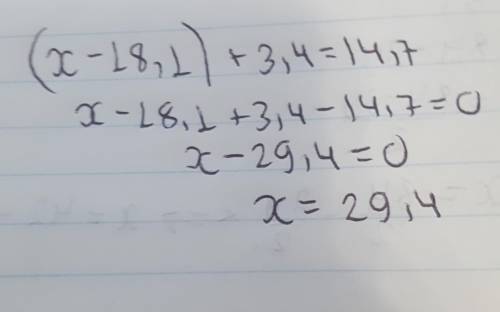 (x-18,1)+3,4=14,7
x-18,1+3,4-14,7=0
x-29,4=0
x=29,4